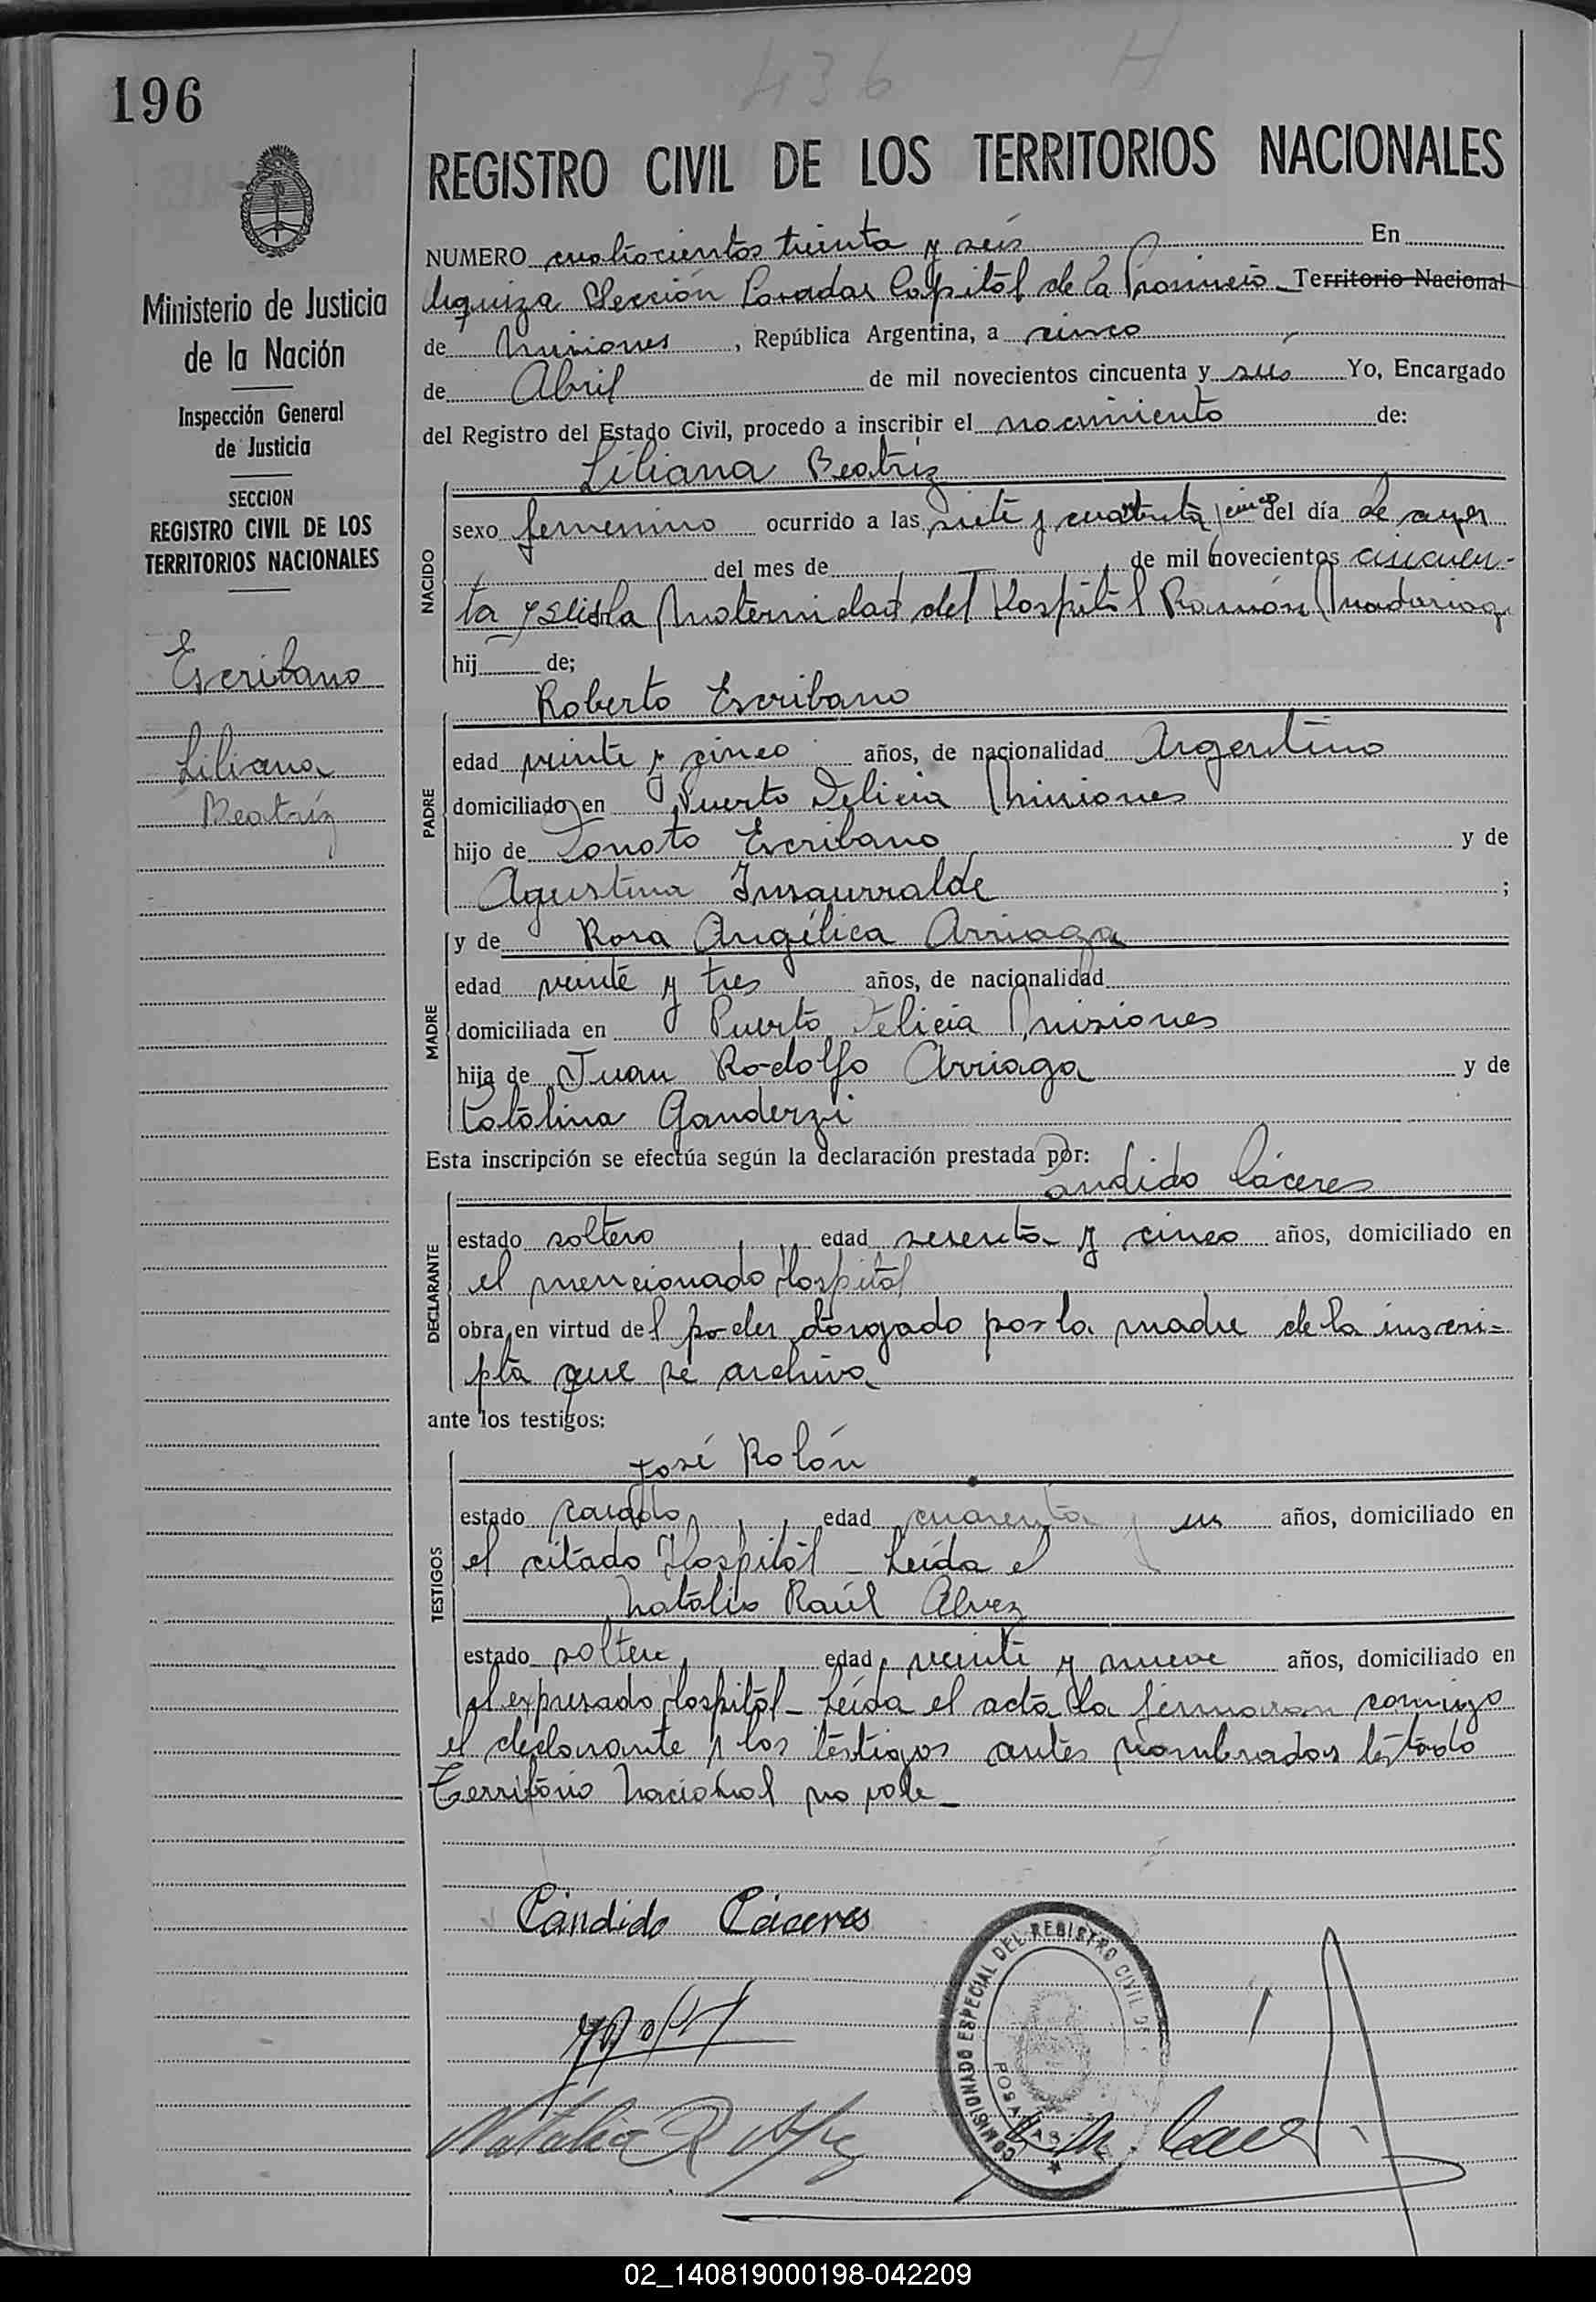 436 H
196
REGISTRO CIVIL DE LOS TERRITORIOS NACIONALES
Ministerio de Justicia
de la Nación
Inspección General
de Justicia
SECCION
REGISTRO CIVIL DE LOS
TERRITORIOS NACIONALES
Escribano
Liliana
Beatriz
NUMERO cuatrocientos treinta y seis En
Urquiza Sección Posadas Capital de la Provincia Territorio Nacional
de Misiones, República Argentina, a cinco
de Abril de mil novecientos cincuenta y seis Yo, Encargado
del Registro del Estado Civil, procedo a inscribir el nacimiento de:
Liliana Beatriz
NACIDO
sexo femenino ocurrido a las siete y cuarenta y cinco del día de ayer
del mes de de mil novecientos cincuen-
ta y seis la Maternidad del Hospital Ramón Madariaga
hij de;
Roberto Escribano
PADRE
edad veinte y cinco años, de nacionalidad Argentino
domiciliado en Puerto Delicia Misiones
hijo de Donato Escribano y de
Agustina Insaurralde ;
MADRE
y de Rosa Angélica Arriaga
edad veinte y tres años, de nacionalidad
domiciliada en Puerto Delicia Misiones
hija de Juan Rodolfo Arriaga y de
Catalina Ganderzi
Esta inscripción se efectúa según la declaración prestada por:
Candido Cáceres
DECLARANTE
estado soltero, edad sesenta y cinco años, domiciliado en
el mencionado Hospital
obra en virtud del poder otorgado por la madre de la inscri=
pta que se archiva
ante los testigos:
José Rolón
TESTIGOS
estado casado, edad cuarenta y un años, domiciliado en
el citado Hospital _ Leída el
Natalio Raúl Alvez
estado soltero, edad veinte y nueve años, domiciliado en
el expresado Hospital _ Leída el acta la firmaron conmigo
el declarante y los testigos antes nombrados testado
Territorio Nacional no vale _
Cándido Cáceres
Natalio R Alvez
COMISIONADO ESPECIAL DEL REGISTRO CIVIL DE
POSADAS
02_140819000198-042209